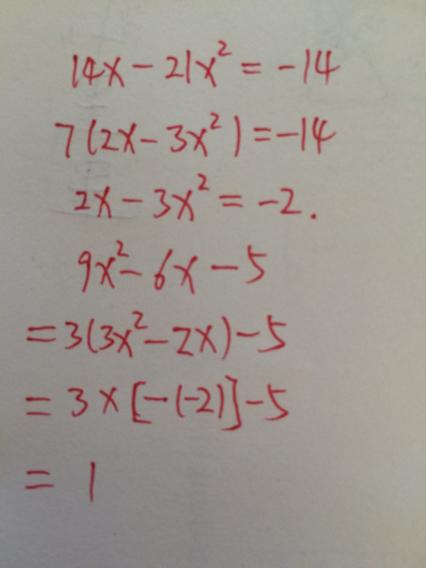 14x - 21x² = -14
7(2x - 3x²) = -14
2x - 3x² = -2.
9x² - 6x - 5
= 3(3x² - 2x) - 5
= 3 × [-(-2)] - 5
= 1